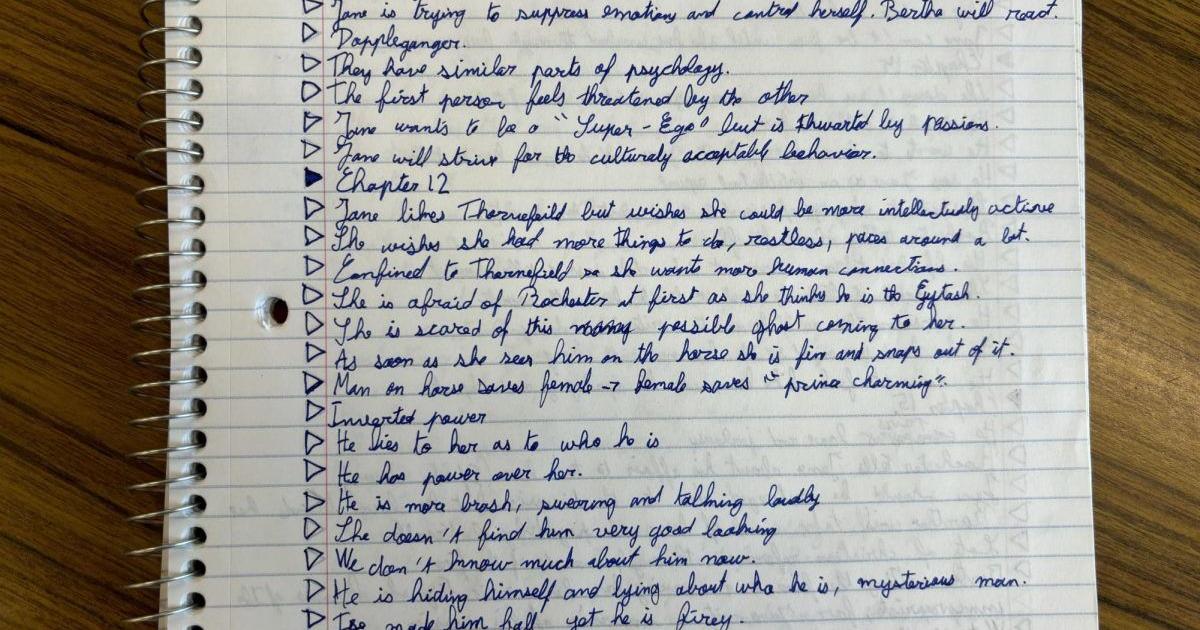 Jane is trying to suppress emotions and control herself. Bertha will react.
Doppleganger.
They have similar parts of psychology.
The first person feels threatened by the other
Jane wants to be a "Super-Ego" but is thwarted by passions.
Jane will strive for the culturaly acceptable behavior.
Chapter 12
Jane likes Thornefeild but wishes she could be more intellectually active
She wishes she had more things to do, restless, paces around a lot.
Confined to Thornefield so she wants more human connections.
She is afraid of Rochester at first as she thinks he is the Gytrash.
She is scared of this possible ghost coming to her.
As soon as she sees him on the horse she is fine and snaps out of it.
Man on horse saves female → female saves "prince charming".
Inverted power
He lies to her as to who he is
He has power over her.
He is more brash, swearing and talking loudly
She doesn't find him very good looking
We don't know much about him now.
He is hiding himself and lying about who he is, mysterious man.
Ice made him fall yet he is firey.